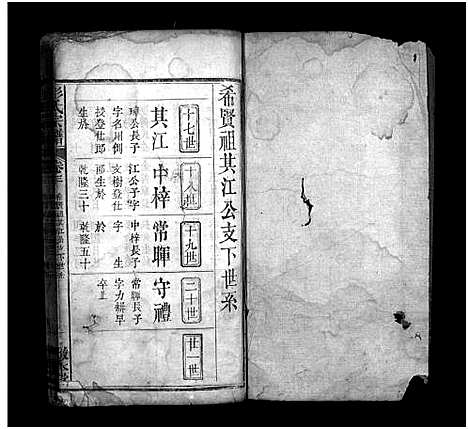 希賢祖其江公支下世系
十七世
十八世
十九世
二十世
廿一世
其江
公長子
字名用倒
授登仕郎
生於
中梓
江公子字
文樹登仕
郎生於
乾隆三十
常暉
中梓長子
字 生
於
乾隆五十
守禮
常暉長子
字力耕早
卒止
氏宗譜
卷三